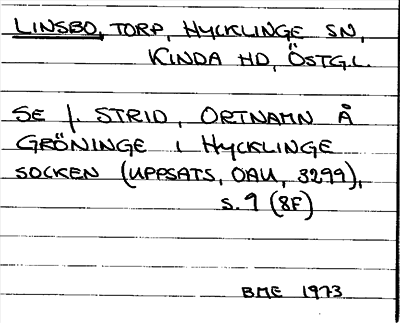 LINSBO, TORP, HYCKLINGE SN,
KINDA HD, ÖSTG.L.
SE J. STRID, ORTNAMN Å
GRÖNINGE I HYCKLINGE
SOCKEN (UPPSATS, OAU, 3299),
S. 9 (8F)
BME 1973